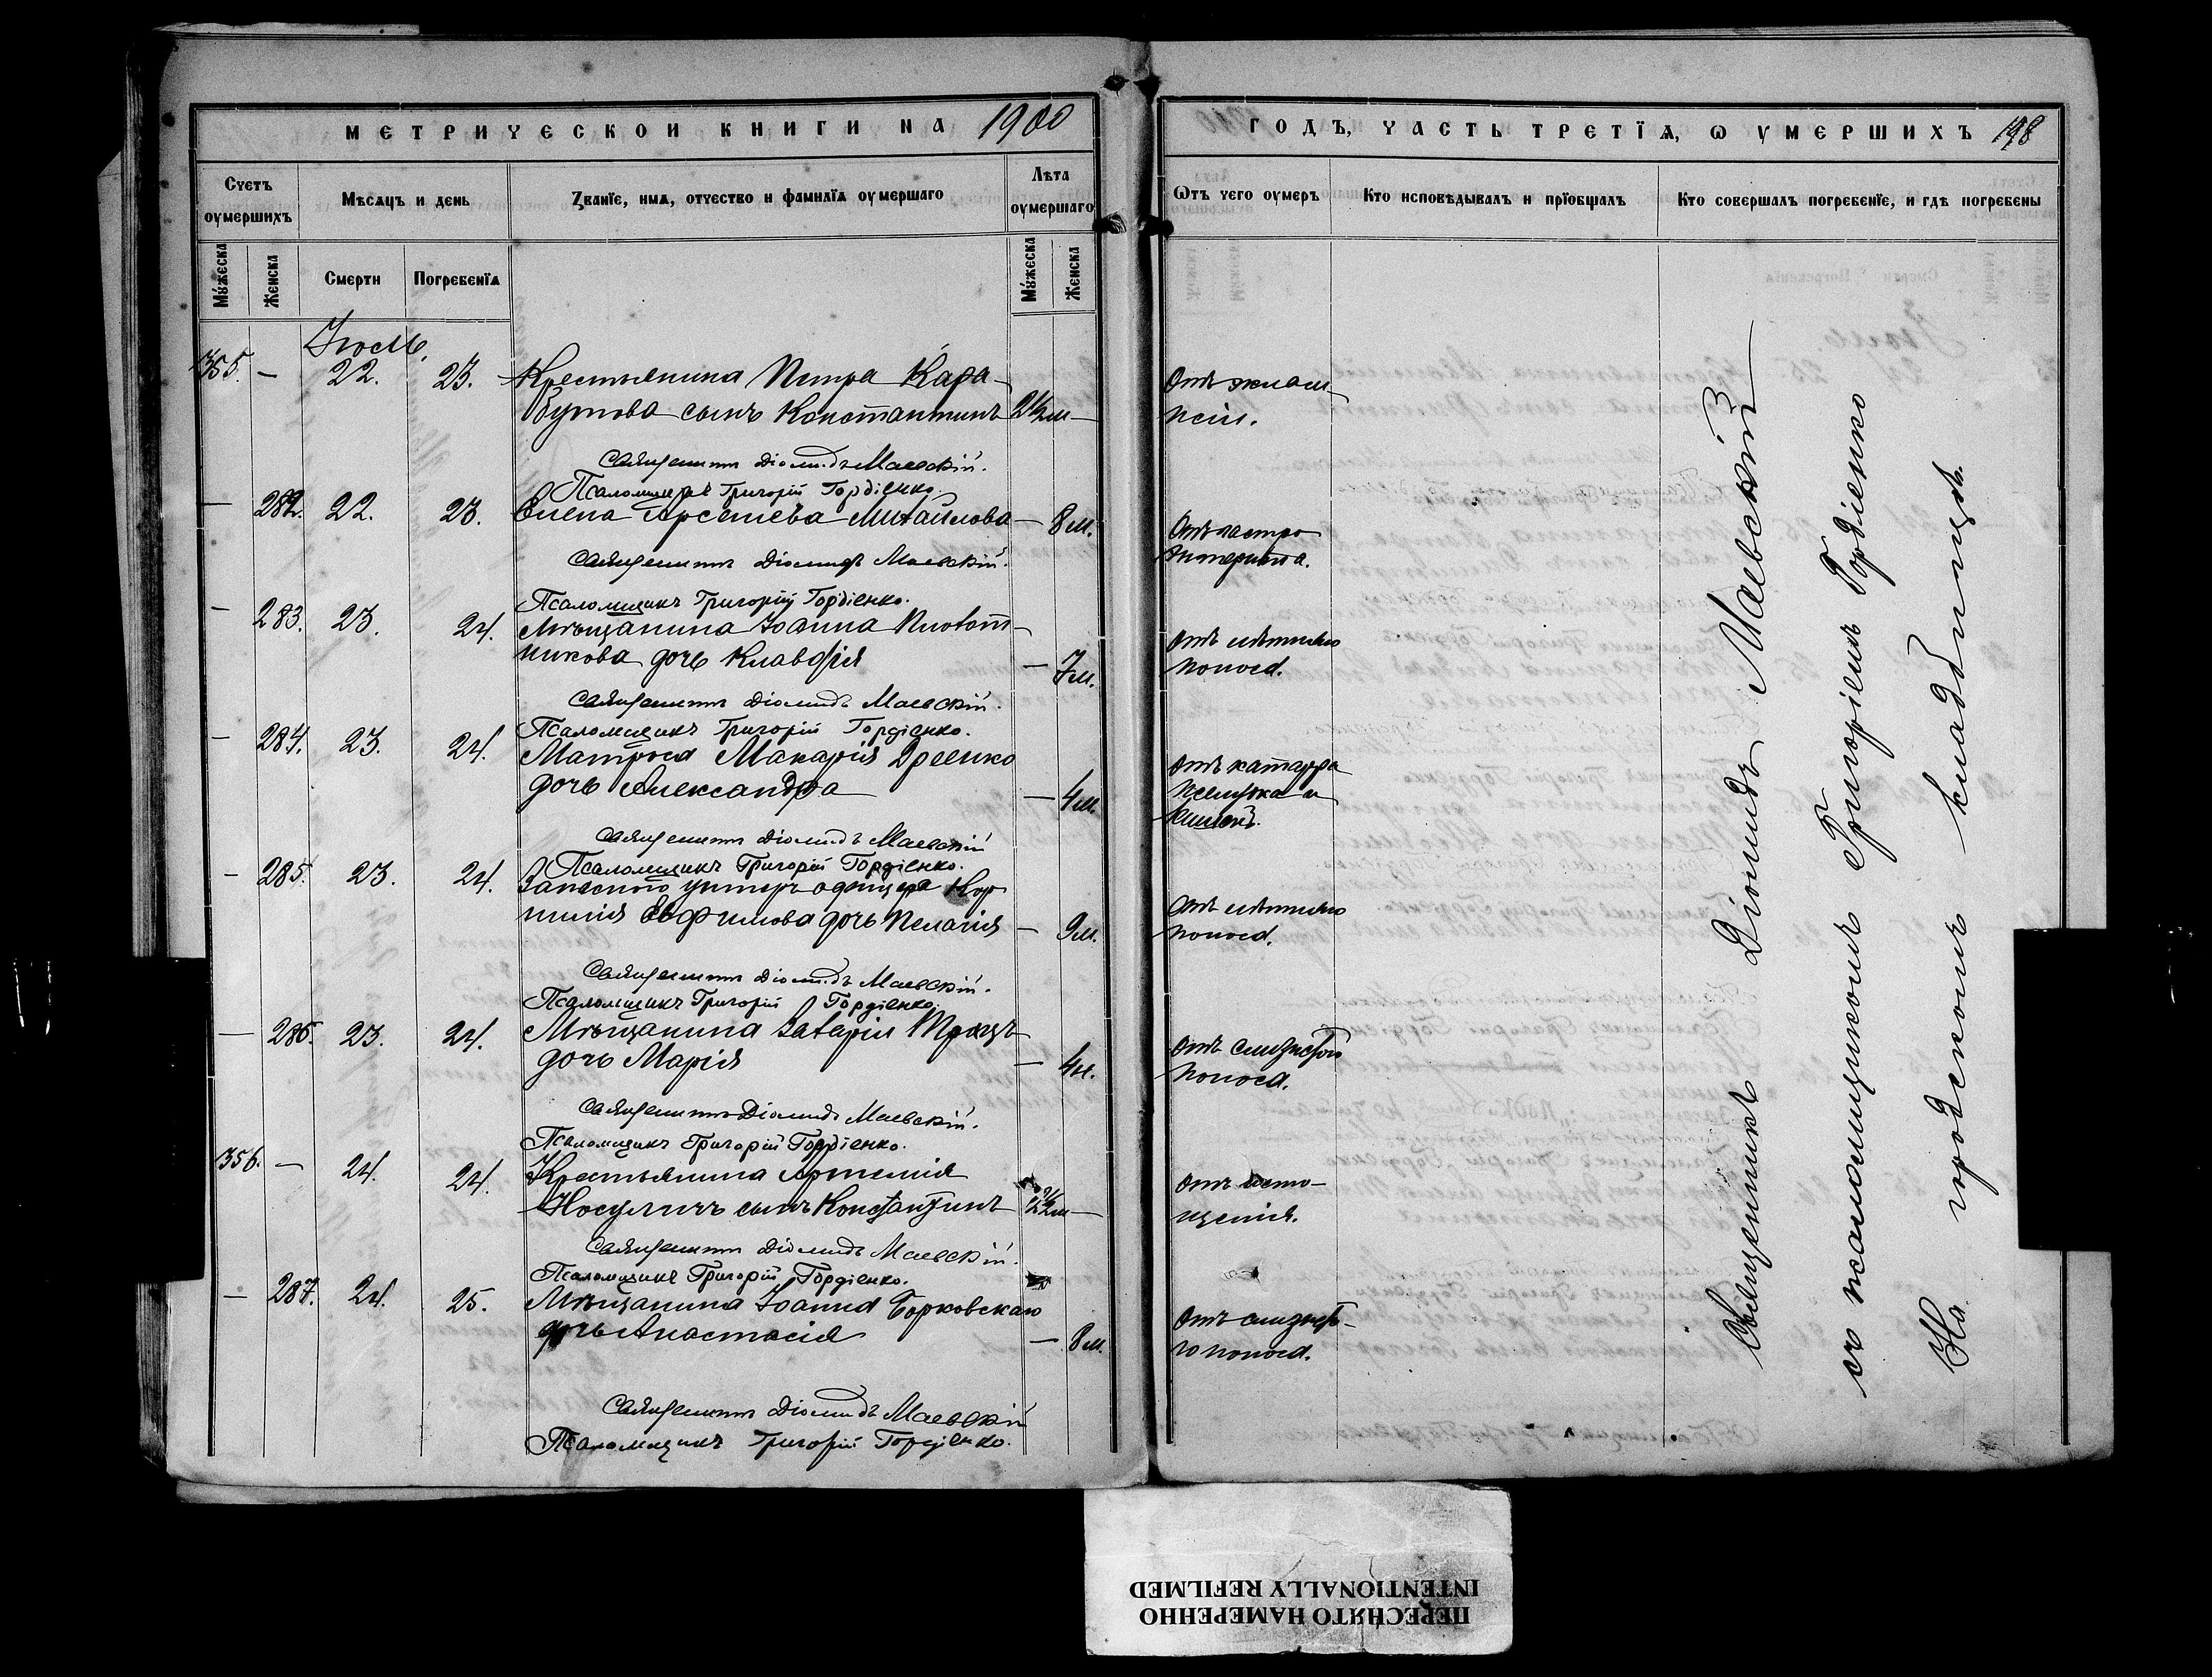 МЕТРИЧЕСКОЙ КНИГИ НА 1900
ГОДЪ, ЧАСТЬ ТРЕТЇѦ, Ѡ УМЕРШИХЪ 198
Счетъ оумершихъ
Мѣсѧцъ и день
Званїе, имѧ, отчество и фамилїа оумершаго
Лѣта оумершаго
Ѿтъ чего оумеръ
Кто исповѣдывалъ и прїобщалъ
Кто совершалъ погребенїе, и гдѣ погребены
Мꙋжеска
Женска
Смерти
Погребенїѧ
Мꙋжеска
Женска
Іюль.
355. — 22. 23. Крестьянина Петра Кара-
бутова сынъ Константинъ 2½ м — Отъ эклам-
псіи.
Священникъ Діомидъ Маевскій.
Псаломщикъ Григорій Гордіенко.
— 282. 22. 23. Елена Арсеніева Михайлова — 8 м. Отъ гастро
энтерита.
Священникъ Діомидъ Маевскій.
Псаломщикъ Григорій Гордіенко.
— 283. 23. 24. Мѣщанина Іоанна
никова дочь Клавдія — 7 м. Отъ лѣтняго
поноса.
Священникъ Діомидъ Маевскій.
Псаломщикъ Григорій Гордіенко.
— 284. 23. 24. Матроса Макарія
дочь Александра — 4 м. Отъ катарра
желудка и
кишекъ.
Священникъ Діомидъ Маевскій
Псаломщикъ Григорій Гордіенко.
— 285. 23. 24. Запасного унтеръ офицера Кор
нилія Евфимова дочь Пелагія — 9 м. Отъ лѣтняго
поноса.
Священникъ Діомидъ Маевскій.
Псаломщикъ Григорій Гордіенко.
— 286. 23. 24. Мѣщанина Захаріи
дочь Марія — 4 н. Отъ слизистого
поноса.
Священникъ Діомидъ Маевскій.
Псаломщикъ Григорій Гордіенко.
356. — 24. 24. Крестьянина Артемія
Носуличъ сынъ Константинъ 2½ м — Отъ исто-
щенія.
Священникъ Діомидъ Маевскій.
Псаломщикъ Григорій Гордіенко.
— 287. 24. 25. Мѣщанина Іоанна Борковскаго
дочь Анастасія — 8 м. Отъ слизисто-
го поноса.
Священникъ Діомидъ Маевскій
Псаломщикъ Григорій Гордіенко.
Священникъ Діомидъ Маевскій
съ псаломщикомъ Григоріемъ Гордіенко
На городскомъ кладбищѣ.
ПЕРЕСНЯТО НАМЕРЕННО
INTENTIONALLY REFILMED